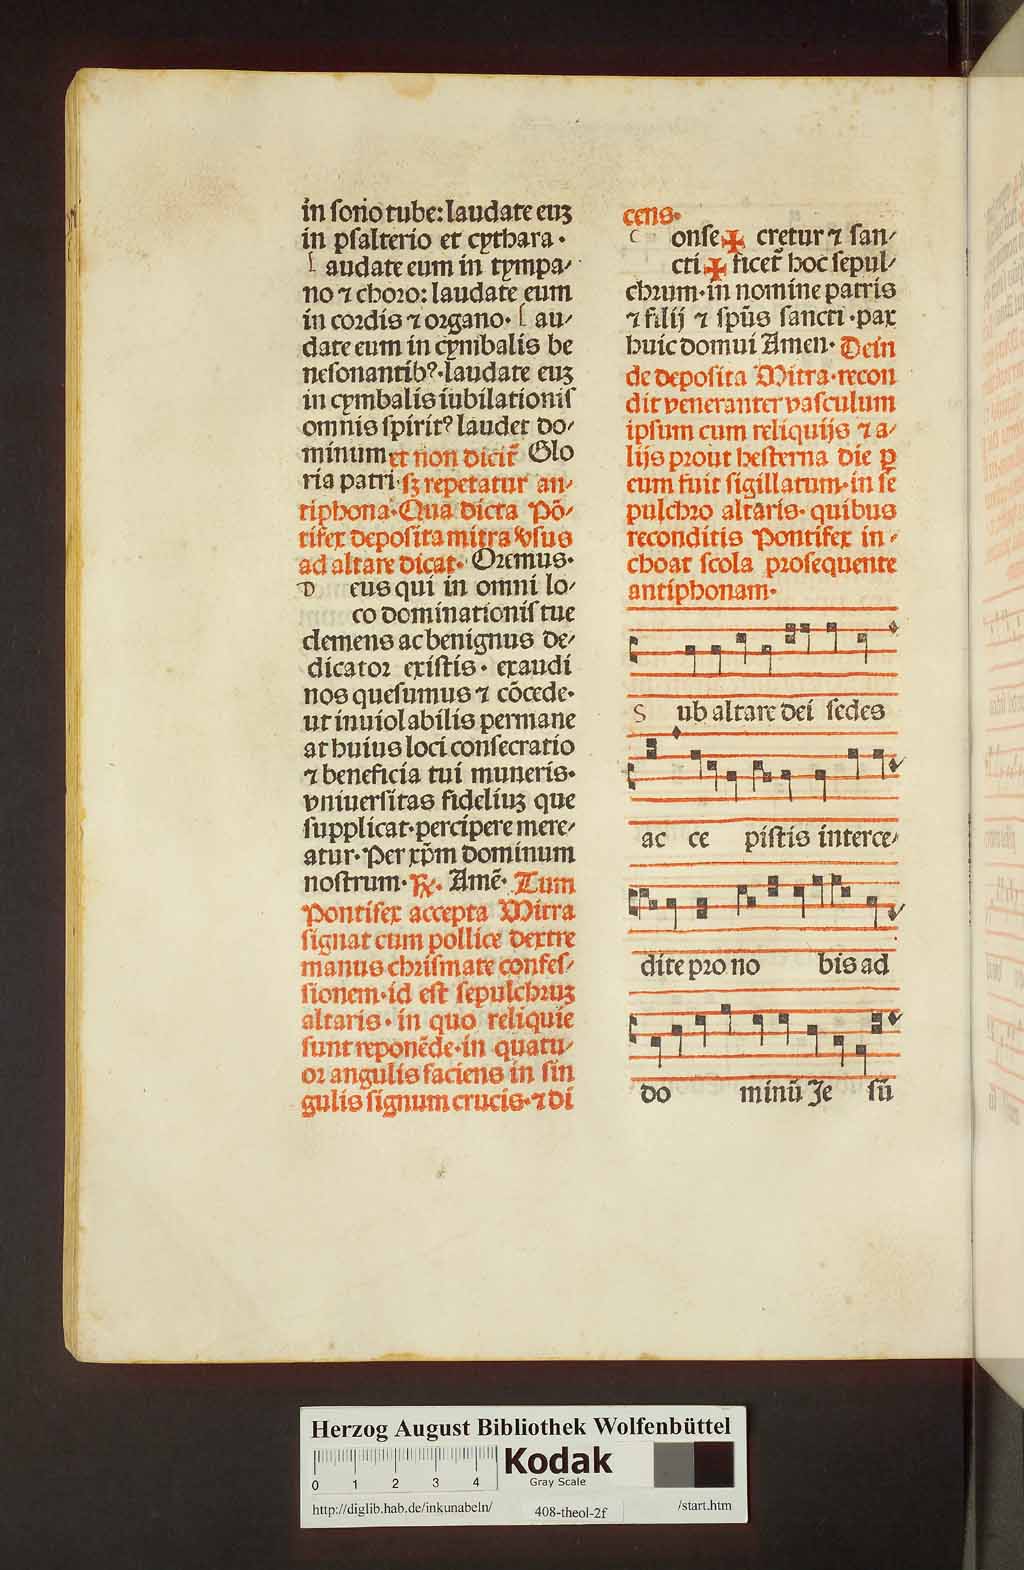 in sono tube: laudate euꝫ
in psalterio et cythara.
l audate eum in tympa/
no ⁊ choro: laudate eum
in cordis ⁊ organo. l au/
date eum in cymbalis be
nesonantibꝰ. laudate euꝫ
in cymbalis iubilationis
omnis spiritꝰ laudet do/
minum et non dicit̃ Glo
ria patri. sꝫ repetatur an/
tiphona. Qua dicta Põ/
tifex deposita mitra ꝟsus
ad altare dicat. Oremus.
D eus qui in omni lo/
co dominationis tue
clemens ac benignus de/
dicator existis. exaudi
nos quesumus ⁊ cõcede.
ut inuiolabilis permane
at huius loci consecratio
⁊ beneficia tui muneris.
vniuersitas fideliuꝫ que
supplicat. percipere mere/
atur. Per xp̃m dominum
nostrum. ℞. Amẽ. Tum
Pontifex accepta Mitra
signat cum pollice dextre
manus chrismate confes/
sionem. id est sepulchruꝫ
altaris. in quo reliquie
sunt reponẽde. in quatu/
or angulis faciens in sin
gulis signum crucis. ⁊ di
cens.
C onse ✠ cretur ⁊ san/
cti ✠ ficet̃ hoc sepul/
chrum. in nomine patris
⁊ filij ⁊ sp̃us sancti. pax
huic domui Amen. Dein
de deposita Mitra. recon
dit veneranter vasculum
ipsum cum reliquijs ⁊ a/
lijs prout hesterna die ꝑ
eum fuit sigillatum. in se
pulchro altaris. quibus
reconditis Pontifex in/
choat scola prosequente
antiphonam.
S ub altare dei sedes
ac ce pistis interce/
dite pro no bis ad
do minũ Je sũ
Herzog August Bibliothek Wolfenbüttel
0 1 2 3 4
Kodak
Gray Scale
http://diglib.hab.de/inkunabeln/ 408-theol-2f /start.htm